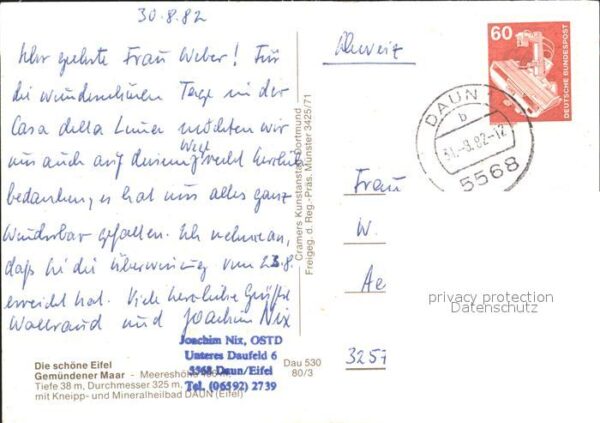 30.8.82
Sehr geehrte Frau Weber! Für
die wunderschönen Tage in der
Casa della Luna möchten wir
uns auch auf diesem Weg recht herzlich
bedanken, es hat uns alles ganz
wunderbar gefallen. Ich nehme an,
daß Sie die Überweisung vom 23.8.
erreicht hat. Viele herzliche Grüße
Waltraud und Joachim Nix
Joachim Nix, OSTD
Unteres Daufeld 6
5568 Daun/Eifel
Tel. (06592) 2739
Die schöne Eifel
Gemündener Maar - Meereshöhe
Tiefe 38 m, Durchmesser 325 m,
mit Kneipp- und Mineralheilbad DAUN (Eifel)
Dau 530
80/3
Cramers Kunstanstalt Dortmund
Freigeg. d. Reg.-Präs. Münster 3425/71
Schweiz
60
DEUTSCHE BUNDESPOST
DAUN
b
31.-8.82-12
5568
Frau
W.
Ae
privacy protection
Datenschutz
3257